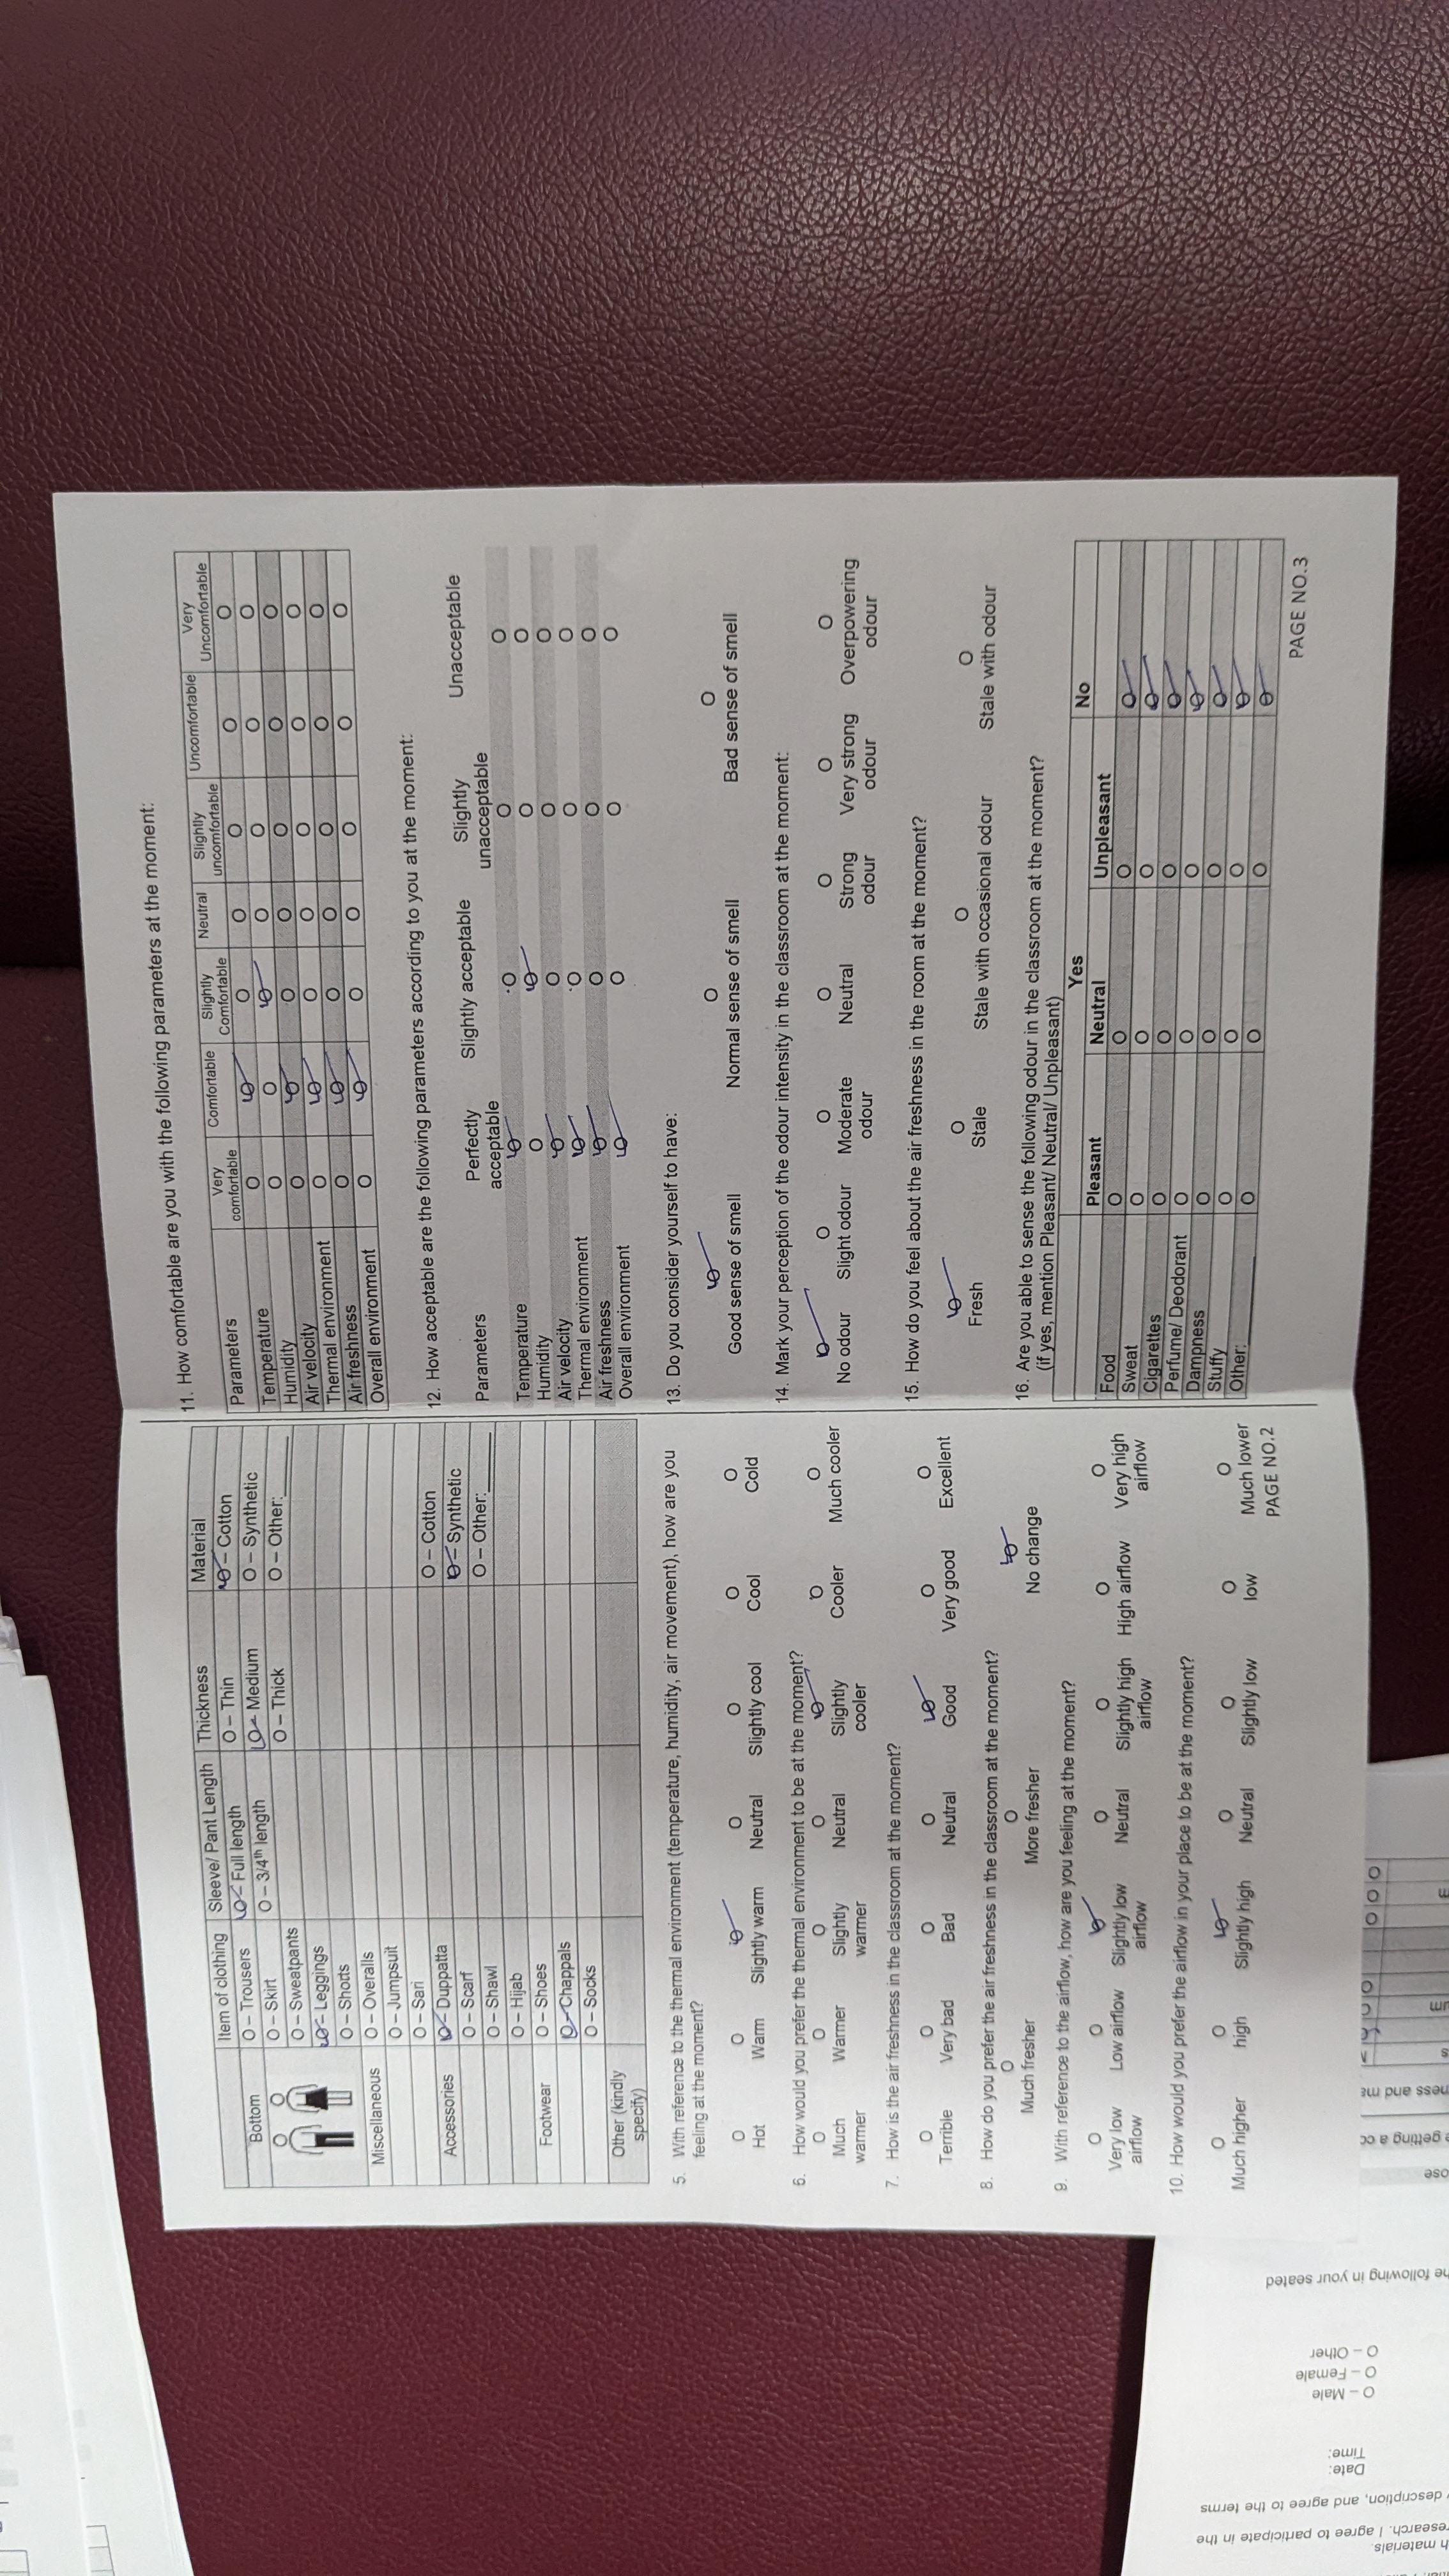 Item of clothing Sleeve/ Pant Length Thickness Material
Bottom O – Trousers O – Full length O – Thin O – Cotton
O – Skirt O – 3/4th length O – Medium O – Synthetic
O – Sweatpants O – Thick O – Other:______
O – Leggings
O – Shorts
Miscellaneous O – Overalls
O – Jumpsuit
O – Sari
Accessories O – Duppatta O – Cotton
O – Scarf O – Synthetic
O – Shawl O – Other:______
O – Hijab
Footwear O – Shoes
O – Chappals
O – Socks
Other (kindly
specify)
5. With reference to the thermal environment (temperature, humidity, air movement), how are you
feeling at the moment?
O O O O O O O
Hot Warm Slightly warm Neutral Slightly cool Cool Cold
6. How would you prefer the thermal environment to be at the moment?
O O O O O O O
Much Warmer Slightly Neutral Slightly Cooler Much cooler
warmer warmer cooler
7. How is the air freshness in the classroom at the moment?
O O O O O O O
Terrible Very bad Bad Neutral Good Very good Excellent
8. How do you prefer the air freshness in the classroom at the moment?
O O O
Much fresher More fresher No change
9. With reference to the airflow, how are you feeling at the moment?
O O O O O O O
Very low Low airflow Slightly low Neutral Slightly high High airflow Very high
airflow airflow airflow airflow
10. How would you prefer the airflow in your place to be at the moment?
O O O O O O O
Much higher high Slightly high Neutral Slightly low low Much lower
PAGE NO.2
11. How comfortable are you with the following parameters at the moment:
Parameters Very Comfortable Slightly Neutral Slightly Uncomfortable Very
comfortable Comfortable uncomfortable Uncomfortable
Temperature O O O O O O O
Humidity O O O O O O O
Air velocity O O O O O O O
Thermal environment O O O O O O O
Air freshness O O O O O O O
Overall environment O O O O O O O
12. How acceptable are the following parameters according to you at the moment:
Parameters Perfectly Slightly acceptable Slightly Unacceptable
acceptable unacceptable
Temperature O O O O
Humidity O O O O
Air velocity O O O O
Thermal environment O O O O
Air freshness O O O O
Overall environment O O O O
13. Do you consider yourself to have:
O O O
Good sense of smell Normal sense of smell Bad sense of smell
14. Mark your perception of the odour intensity in the classroom at the moment:
O O O O O O O
No odour Slight odour Moderate Neutral Strong Very strong Overpowering
odour odour odour odour
15. How do you feel about the air freshness in the room at the moment?
O O O O
Fresh Stale Stale with occasional odour Stale with odour
16. Are you able to sense the following odour in the classroom at the moment?
(if yes, mention Pleasant/ Neutral/ Unpleasant)
Yes No
Pleasant Neutral Unpleasant
Food O O O O
Sweat O O O O
Cigarettes O O O O
Perfume/ Deodorant O O O O
Dampness O O O O
Stuffy O O O O
Other:________ O O O O
PAGE NO.3
materials.
research. I agree to participate in the
description, and agree to the terms
Date:
Time:
O – Male
O – Female
O – Other
following in your seated
getting a
and